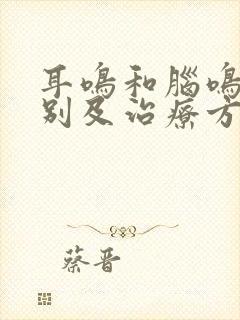 耳鳴和腦鳴
別及治療方
蔡晋